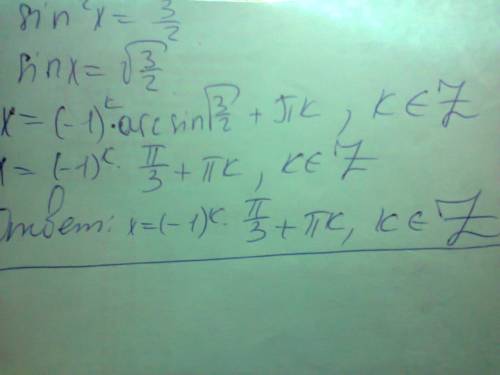 sin²x = 3/2
sin x = √(3/2)
x = (-1)ᵏ · arcsin √(3/2) + πk , k ∈ Z
x = (-1)ᵏ · π/3 + πk , k ∈ Z
Ответ: x = (-1)ᵏ · π/3 + πk, k ∈ Z